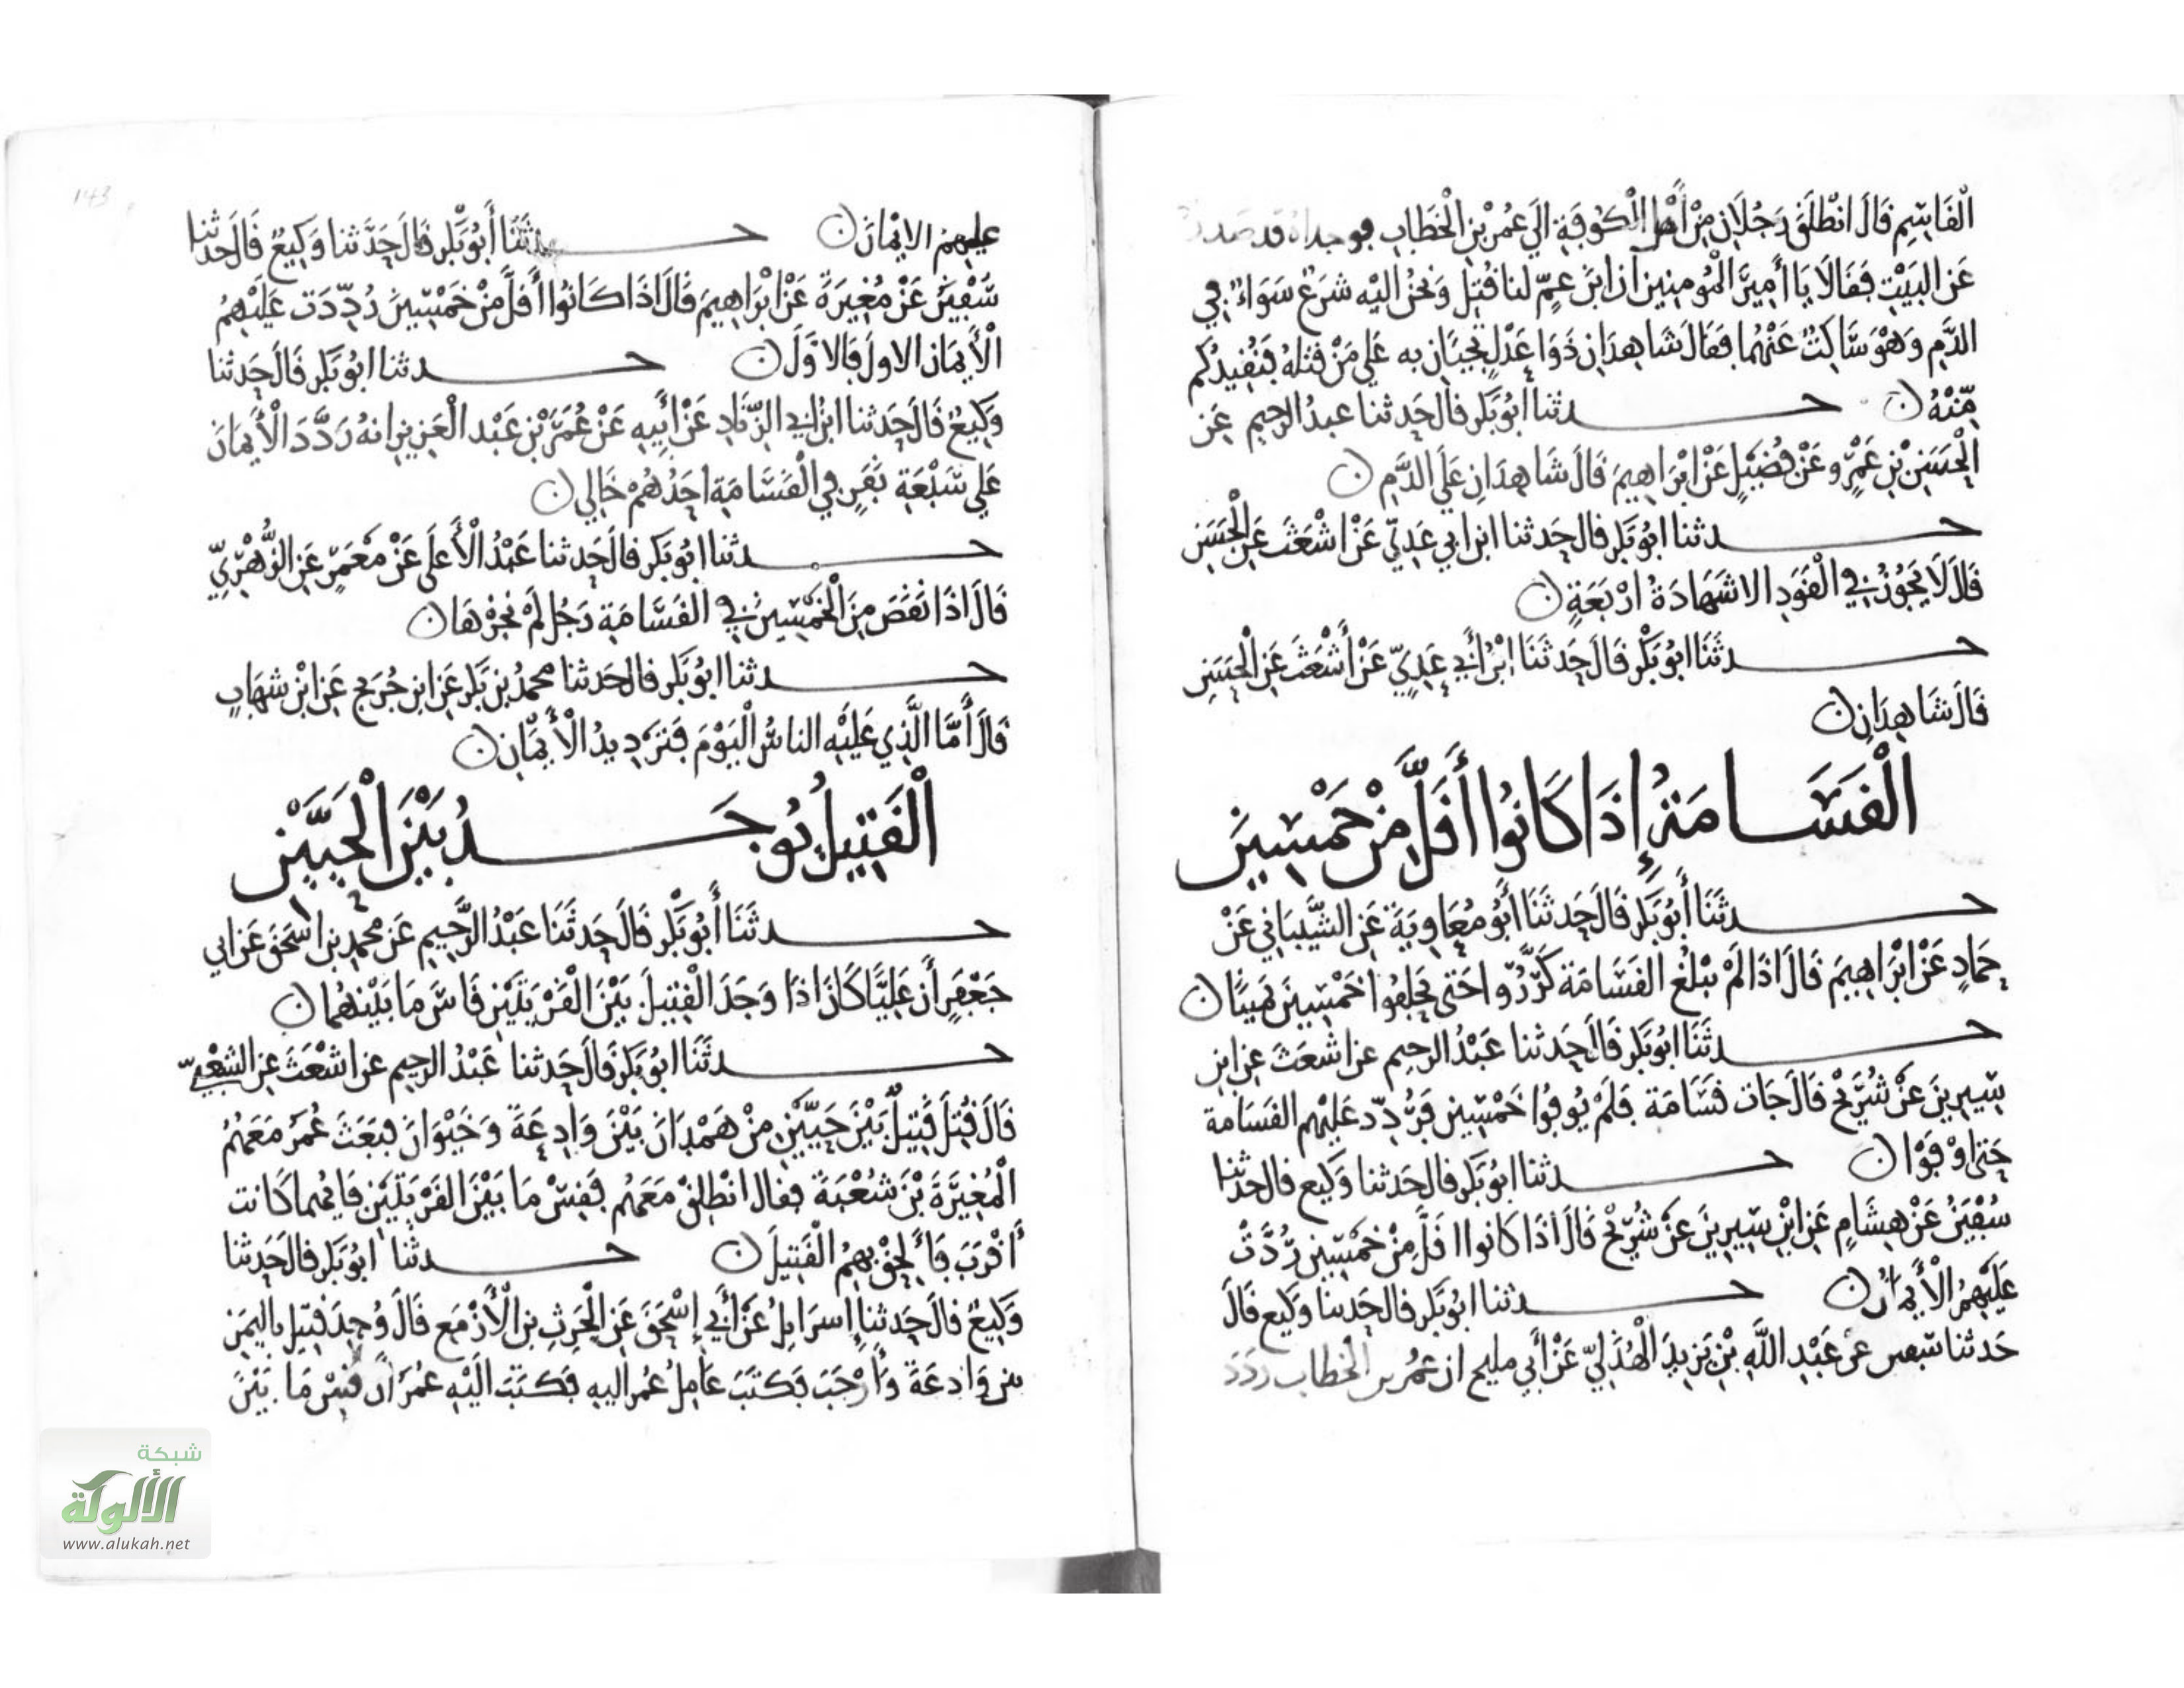 الْقَاسِمِ قَالَ انْطَلَقَ رَجُلَانِ مِنْ أَهْلِ الْكُوفَةِ الَي عُمَرَ بْنِ الْخَطَابِ فوجداه قد صدر
عَنِ البَيْتِ فَقَالَا يَا أَمِيرَ الْمُومِنِينَ ان ابْنَ عَمٍّ لنا قُتِلَ وَنَحْنُ اليْه شَرَعٌ سَوَاءٌ فِي
الدَّمِ وَهْوَ سَاكِتٌ عَنْهُمَا فَقَالَ شَاهِدَانِ ذَوَا عَدْلٍ تجِيَانِ به عَلي مَنْ قتلهُ فَنُقِيدُكُم
مِنْهُ ن حدثنا ابُو بَكْرٍ قال حَدثنا عبدُ الرحيم عَنِ
الْحَسَنِ بْنِ عَمْرٍو عَنْ فُضَيْلٍ عَنْ ابْرَاهِيمَ قَالَ شَاهِدَانِ عَلَي الدَّمِ ن
حدثنا ابُو بَكْرٍ قال حَدثنا ابن ابي عَدِيّ عَنْ اشْعَثَ عَنِ الْحَسَنِ
قَالَ لَا يَجُوزُ فِي الْقَوَدِ الا شَهَادَةُ ارْبَعَةٍ ن
حدثَنَا ابُو بَكْرٍ قَالَ حَدثَنَا ابْنُ أَبِي عَدِيٍّ عَنْ أَشْعَثَ عَنِ الْحَسَنِ
قَالَ شَاهِدَانِ ن
الْقَسَامَةُ إِذَا كَانُوا أَقَلَّ مِنْ خَمْسِينَ
حدثَنَا أَبُو بَكْرٍ قَالَ حَدثَنَا أَبُو مُعَاوِيَةَ عَنِ الشَّيْبَانِي عَنْ
حَمادٍ عَنْ ابْرَاهِيمَ قَالَ اذَا لَمْ تبْلغ القَسَامَة كَرَّرُوا حَتى يَحلِفُوا خَمْسِينَ يَمِينًا ن
حدثَنَا ابُو بَكْرٍ قَالَ حَدثنا عَبْدُ الرحيم عن اشْعَثَ عن ابن
سِيرِينَ عَنْ شُرَيْح قَالَ جَات قَسَامَة فَلَمْ يُوفُوا خَمْسِين فَرَدِّد عَلَيْهم القَسَامة
حَتى اوْفَوْا ن حدثنا ابُو بَكْرٍ قال حَدثنا وَكيع قال حدثنا
سُفْيَنُ عَنْ هِشَامٍ عَنِ ابْنِ سِيرِينَ عَنْ شُرَيْح قَالَ اذَا كَانوا اقَلَّ مِنْ خَمْسِينَ رُدَّتْ
عَلَيْهِمُ الْأَيْمَانُ ن حدثنا ابُو بَكْرٍ قال حَدثنا وَكيع قَالَ
حَدثنا سفين عن عَبْدِ اللَّهِ بْنِ يَزِيدَ الْهُذَلِيّ عَنْ أَبي مليح ان عمُر بن الخطاب رَدَدَ
عليهمُ الايْمَانَ ن حدثَنَا أَبُو بَكْر قَالَ حَدَّثنا وَكِيعٌ قَالَ حَدثنا
سُفْيَنُ عَنْ مُغِيرَةَ عَنْ ابْرَاهِيمَ قَالَ اذَا كَانُوا أَقَلَّ مِنْ خَمْسِينَ رُدِّدَت عَلَيْهِمُ
الْأَيْمَان الاولَ فَالاوَّلَ ن حدثنا ابُو بَكْرٍ قَالَ حَدثنا
وَكِيعٌ قَالَ حَدثنا ابنُ ابي الزِّنَادِ عَنْ أَبِيهِ عَنْ عُمَرَ بْنِ عَبْد الْعَزِيزِ انهُ رَدَّدَ الْأَيْمَانَ
عَلي سَبْعَةِ نَفَرٍ فِي الْقَسَامَةِ احَدُهُمْ خَالِي ن
حدثنا ابُو بَكر قالَ حَدثنا عَبْدُ الْأَعلَى عَنْ مَعْمَرٍ عَنِ الزُّهْرِيِّ
قَالَ اذَا نَقَصَ مِنَ الْخَمْسِينَ فِي القَسَّامَةِ رَجُل لَمْ نُجِزْهَا ن
حدثنا ابُو بَكر قال حَدثنا محمدُ بن بَكْر عَن ابن جُرَيج عَنِ ابْن شهَابٍ
قَالَ أَمَّا الَّذِي عَلَيْهِ الناسُ الْيَوْمَ فَتَرْدِيدُ الْأَيْمَانِ ن
الْقَتِيلُ يُوجَدُ بَيْنَ الْحَيَّيْنِ
حدثَنَا أَبُو بَكْرٍ قَالَ حَدثَنَا عَبْدُ الرَّحِيمِ عَن محمدِ بن اسْحَقَ عَن ابي
جَعْفَرٍ أَن عَلِيًّا كَانَ اذَا وَجَدَ الْقَتِيلَ بَيْنَ الْقَرْيَتَيْنِ قَاسَ مَا بَيْنهُمَا ن
حدثَنَا ابُو بَكر قَالَ حَدثنا عَبْدُ الرحِيمِ عن اشْعَثَ عن الشعْبِيّ
قَالَ قُتِلَ قَتِيلٌ بَيْنَ حَيَّيْنِ مِنْ هَمْدَانَ بَيْنَ وَادِعَةَ وَخَيْوَانَ فبَعَثَ عُمَرُ مَعَهُمُ
الْمُغِيرَةَ بْنَ شُعْبَةَ فقال انْطلِقْ مَعَهُم فَقِسْ مَا بَيْنَ القَرْيَتَيْنِ فَايهُما كَانت
أَقْرَبَ فَأَلْحِقْ بِهِمُ الْقَتِيلَ ن حدثنا ابُو بَكْر قالَ حَدثنا
وَكِيعٌ قالَ حَدثنا إسرَايِلُ عَنْ أَبِي إِسْحَقَ عَنِ الْحَرِثِ بن الْأَزْمَع قَالَ وُجِدَ قتيل باليَمَنِ
بين وَادِعَةَ وَأَرْحَبَ فَكَتَبَ عَامِلُ عُمَر اليهِ فَكَتَبَ الَيْهِ عُمَرُ أَن قِسْ مَا بَيْنَ
143
شبكة
الألوكة
www.alukah.net